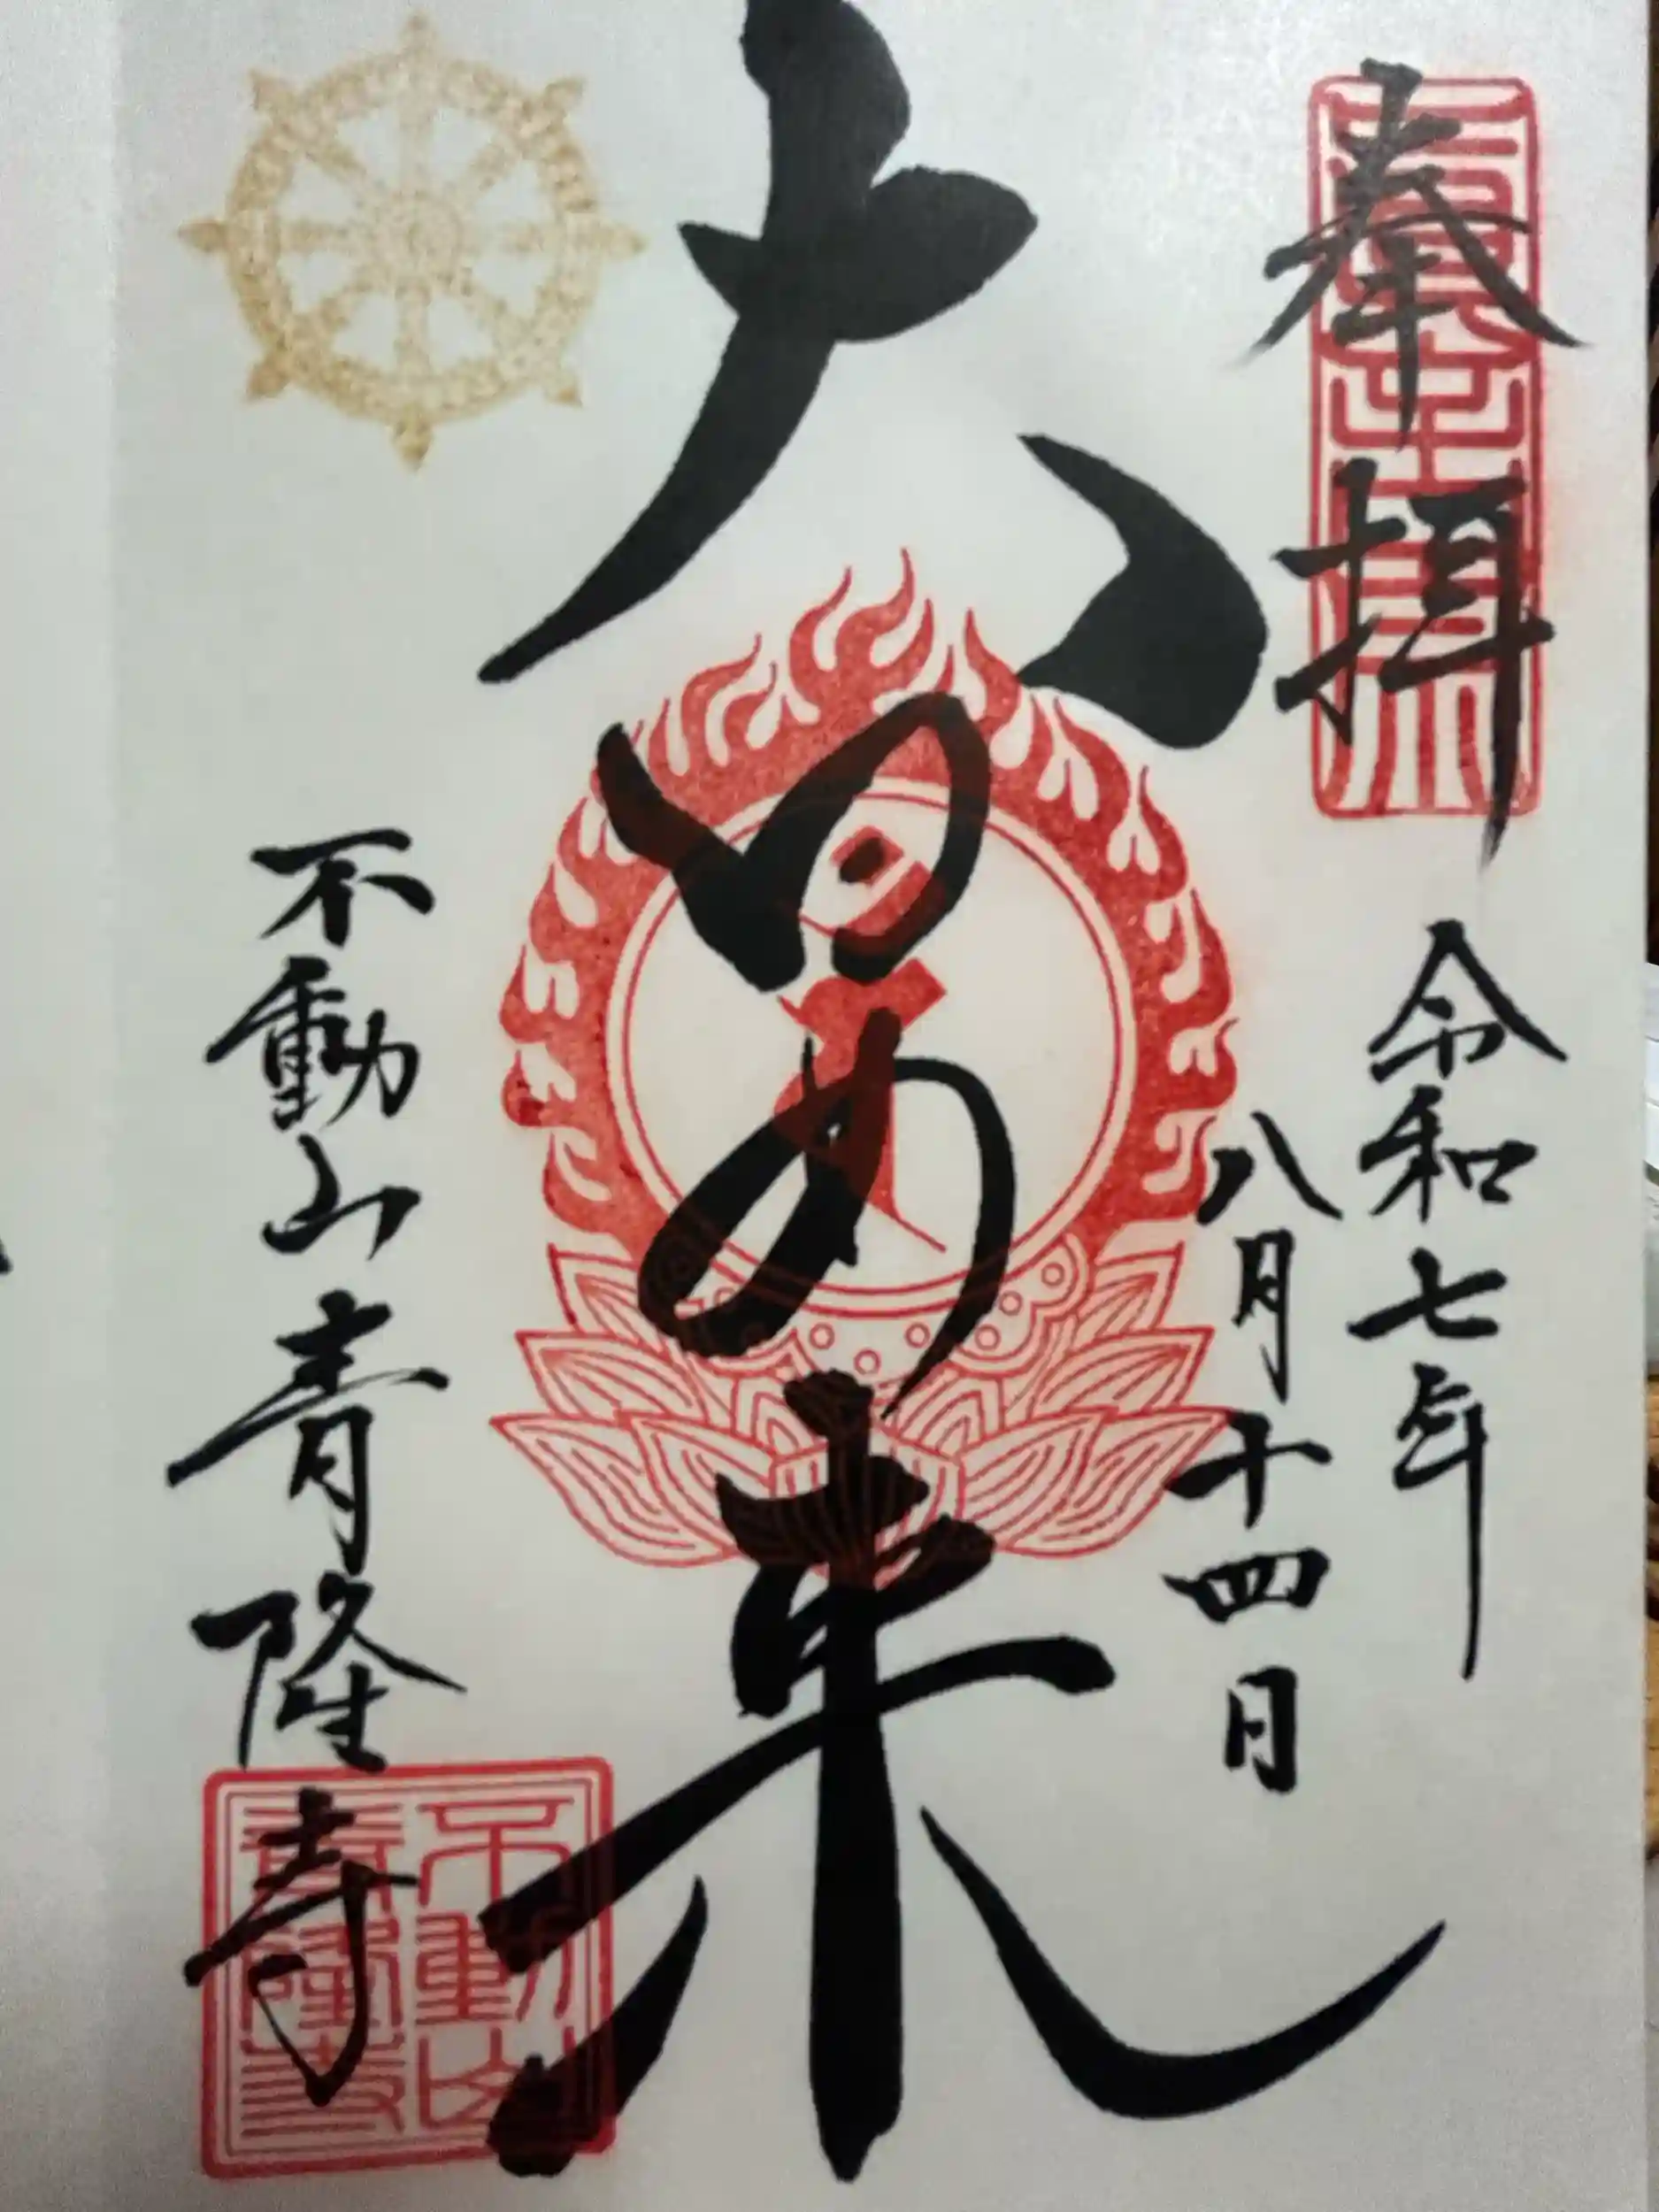 奉拝
令和七年
八月十四日
大日如来
不動山青隆寺
不動山
青隆寺